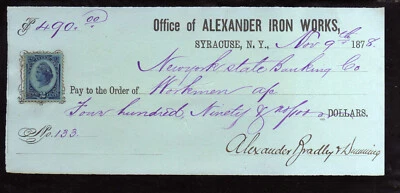 $490.00 Office of ALEXANDER IRON WORKS,
SYRACUSE, N.Y., Nov 9th 1878
Newyork State Banking Co
Pay to the Order of Workmen a/c
Four hundred Ninety & no/100 DOLLARS.
No. 133
Alexander Bradley & Dunning